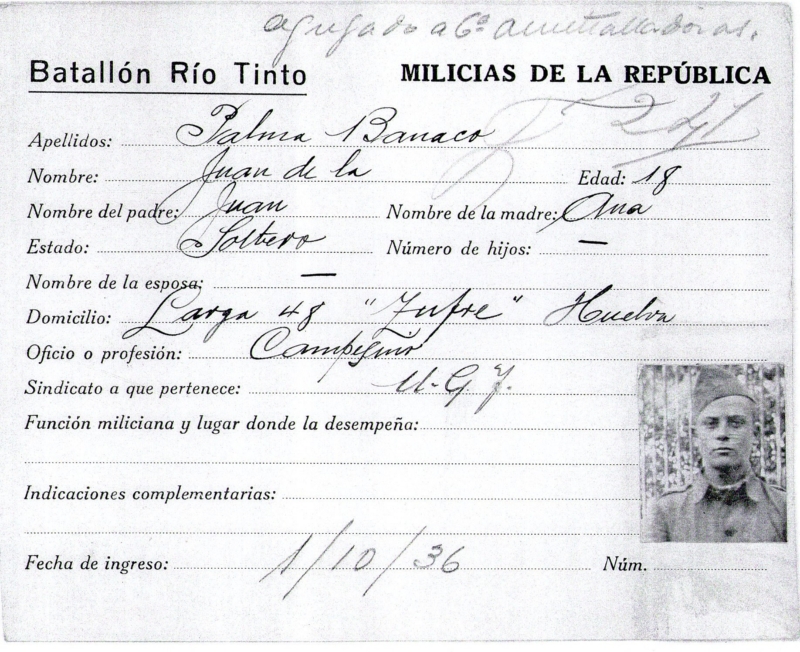 agregado a 6ª ametralladoras.
Batallón Río Tinto MILICIAS DE LA REPÚBLICA
Apellidos: Palma Banaco
Nombre: Juan de la Edad: 18
Nombre del padre: Juan Nombre de la madre: Ana
Estado: Soltero Número de hijos: —
Nombre de la esposa: —
Domicilio: Larga 48 "Zufre" Huelva
Oficio o profesión: Campesino
Sindicato a que pertenece: U.G.T.
Función miliciana y lugar donde la desempeña:
Indicaciones complementarias:
Fecha de ingreso: 1/10/36 Núm.